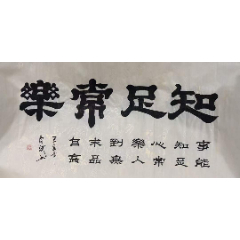 知足常樂
事能
知足
心常
樂人
到無
求品
自高